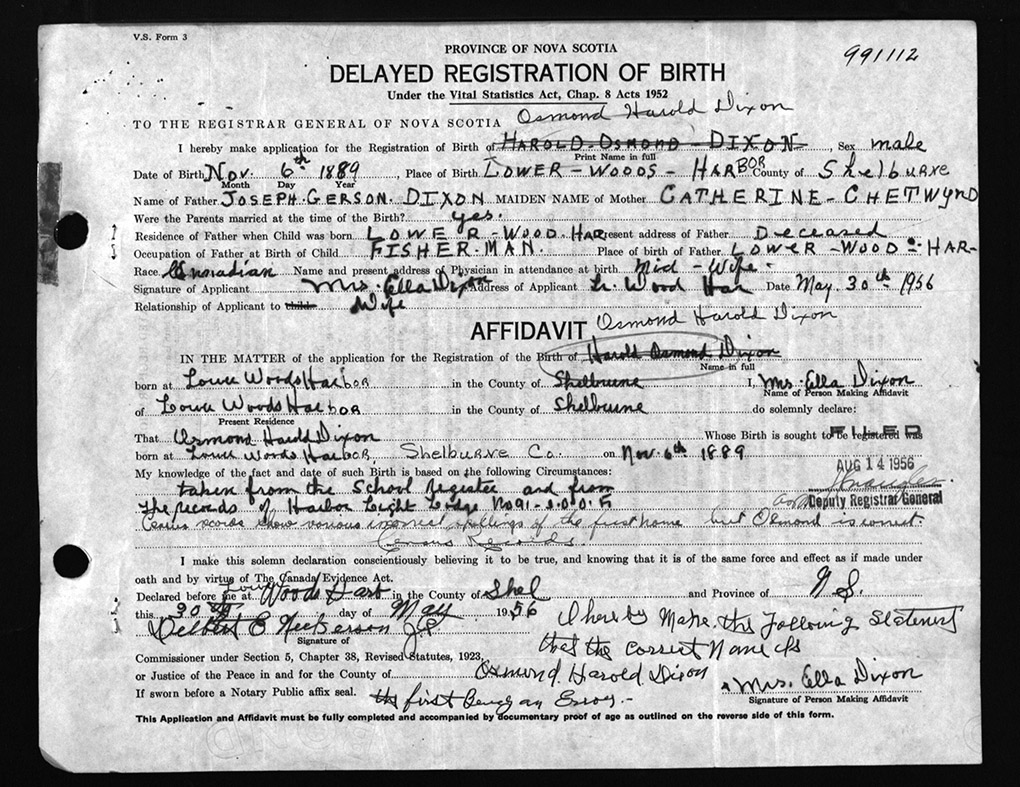 V.S. Form 3
991112
PROVINCE OF NOVA SCOTIA
DELAYED REGISTRATION OF BIRTH
Under the Vital Statistics Act, Chap. 8 Acts 1952
Osmond Harold Dixon
TO THE REGISTRAR GENERAL OF NOVA SCOTIA
I hereby make application for the Registration of Birth of HAROLD OSMOND - DIXON, Sex male
Print Name in full
Date of Birth Nov. 6th 1889, Place of Birth LOWER - WOODS - HARBOR County of Shelburne
Month Day Year
Name of Father JOSEPH. GERSON. DIXON MAIDEN NAME of Mother CATHERINE - CHETWYND
Were the Parents married at the time of the Birth? yes.
Residence of Father when Child was born LOWER - WOOD. HAR Present address of Father Deceased
Occupation of Father at Birth of Child FISHER-MAN. Place of birth of Father LOWER - WOODS - HAR-
Race Canadian Name and present address of Physician in attendance at birth Mid - Wife -
Signature of Applicant Mrs. Ella Dixon Address of Applicant Lr. Wood Har Date May. 30th 1956
Relationship of Applicant to child Wife
AFFIDAVIT Osmond Harold Dixon
IN THE MATTER of the application for the Registration of the Birth of Harold Osmond Dixon
Name in full
born at Lower Woods Harbor in the County of Shelburne I, Mrs. Ella Dixon
Name of Person Making Affidavit
of Lower Woods Harbor in the County of Shelburne do solemnly declare:
Present Residence
That Osmond Harold Dixon Whose Birth is sought to be registered was
FILED
born at Lower Woods Harbor, Shelburne Co. on Nov. 6th 1889
My knowledge of the fact and date of such Birth is based on the following Circumstances:
AUG 14 1956
taken from the School register and from
the records of Harbor Light Lodge No 91 - I.O.O.F.
Deputy Registrar General
Census records show various incorrect spellings of the first name but Osmond is correct.
Census Records.
I make this solemn declaration conscientiously believing it to be true, and knowing that it is of the same force and effect as if made under
oath and by virtue of The Canada Evidence Act.
Declared before me at Lower Woods Harb in the County of Shel and Province of N.S.
this 30th day of May 1956
I hereby Make the Following Statement
Delbert E Nickerson J.P.
that the correct Name is
Signature of
Commissioner under Section 5, Chapter 38, Revised Statutes, 1923,
or Justice of the Peace in and for the County of Osmond. Harold Dixon
Mrs. Ella Dixon
If sworn before a Notary Public affix seal. the first Being an Error -
Signature of Person Making Affidavit
This Application and Affidavit must be fully completed and accompanied by documentary proof of age as outlined on the reverse side of this form.